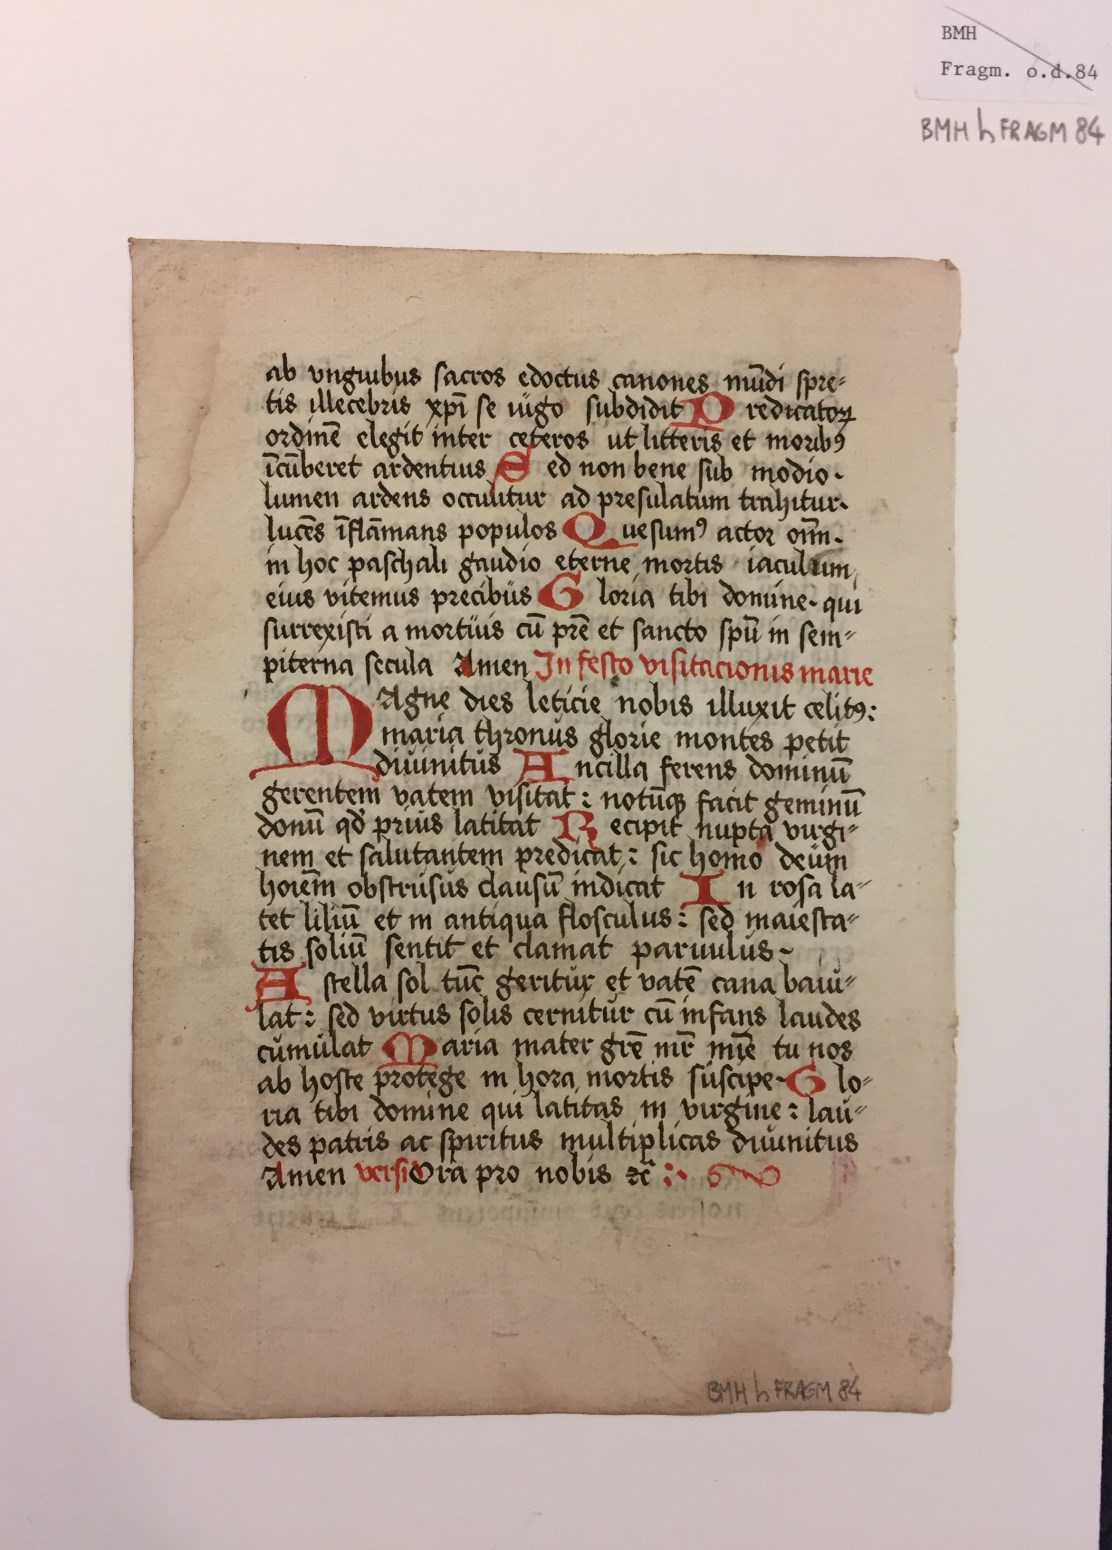 BMH
Fragm. o.d.84
BMH h FRAGM 84
ab vnguibus sacros edoctus canones mūdi spre-
tis illecebris xpī se iugo subdidit Predicatoꝝ
ordinē elegit inter ceteros ut litteris et moribꝰ
īcūberet ardentius Sed non bene sub modio.
lumen ardens occulitur ad presulatum trahitur.
lucēs īflāmans populos Quesumꝰ actor oīm.
in hoc paschali gaudio eterne mortis iaculum
eius vitemus precibus Gloria tibi domine. qui
surrexisti a mortuis cū prē et sancto spū in sem-
piterna secula Amen In festo visitacionis marie
MAgne dies leticie nobis illuxit celitꝰ:
maria thronus glorie montes petit
diuinitus Ancilla ferens dominū
gerentem vatem visitat: notūqꝫ facit geminū
donū qd prius latitat Recipit nupta virgi-
nem et salutantem predicat: sic homo deum
hoīem obstrusus clausū indicat In rosa la-
tet liliū et in antiqua flosculus: sed maiesta-
tis soliū sentit et clamat paruulus.
A stella sol tūc geritur et vatē cana baiu-
lat: sed virtus solis cernitur cū infans laudes
cumulat Maria mater grē mr̄ mīe tu nos
ab hoste protege in hora mortis suscipe. Glo-
ria tibi domine qui latitas in virgine: lau-
des patris ac spiritus multiplicas diuinitus
Amen versi Ora pro nobis ⁊c̄
BMH h FRAGM 84